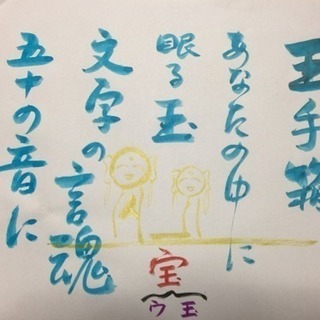 玉手箱
あなたの中に
眠る玉
文字の言魂
五十の音に
宝
ウ玉